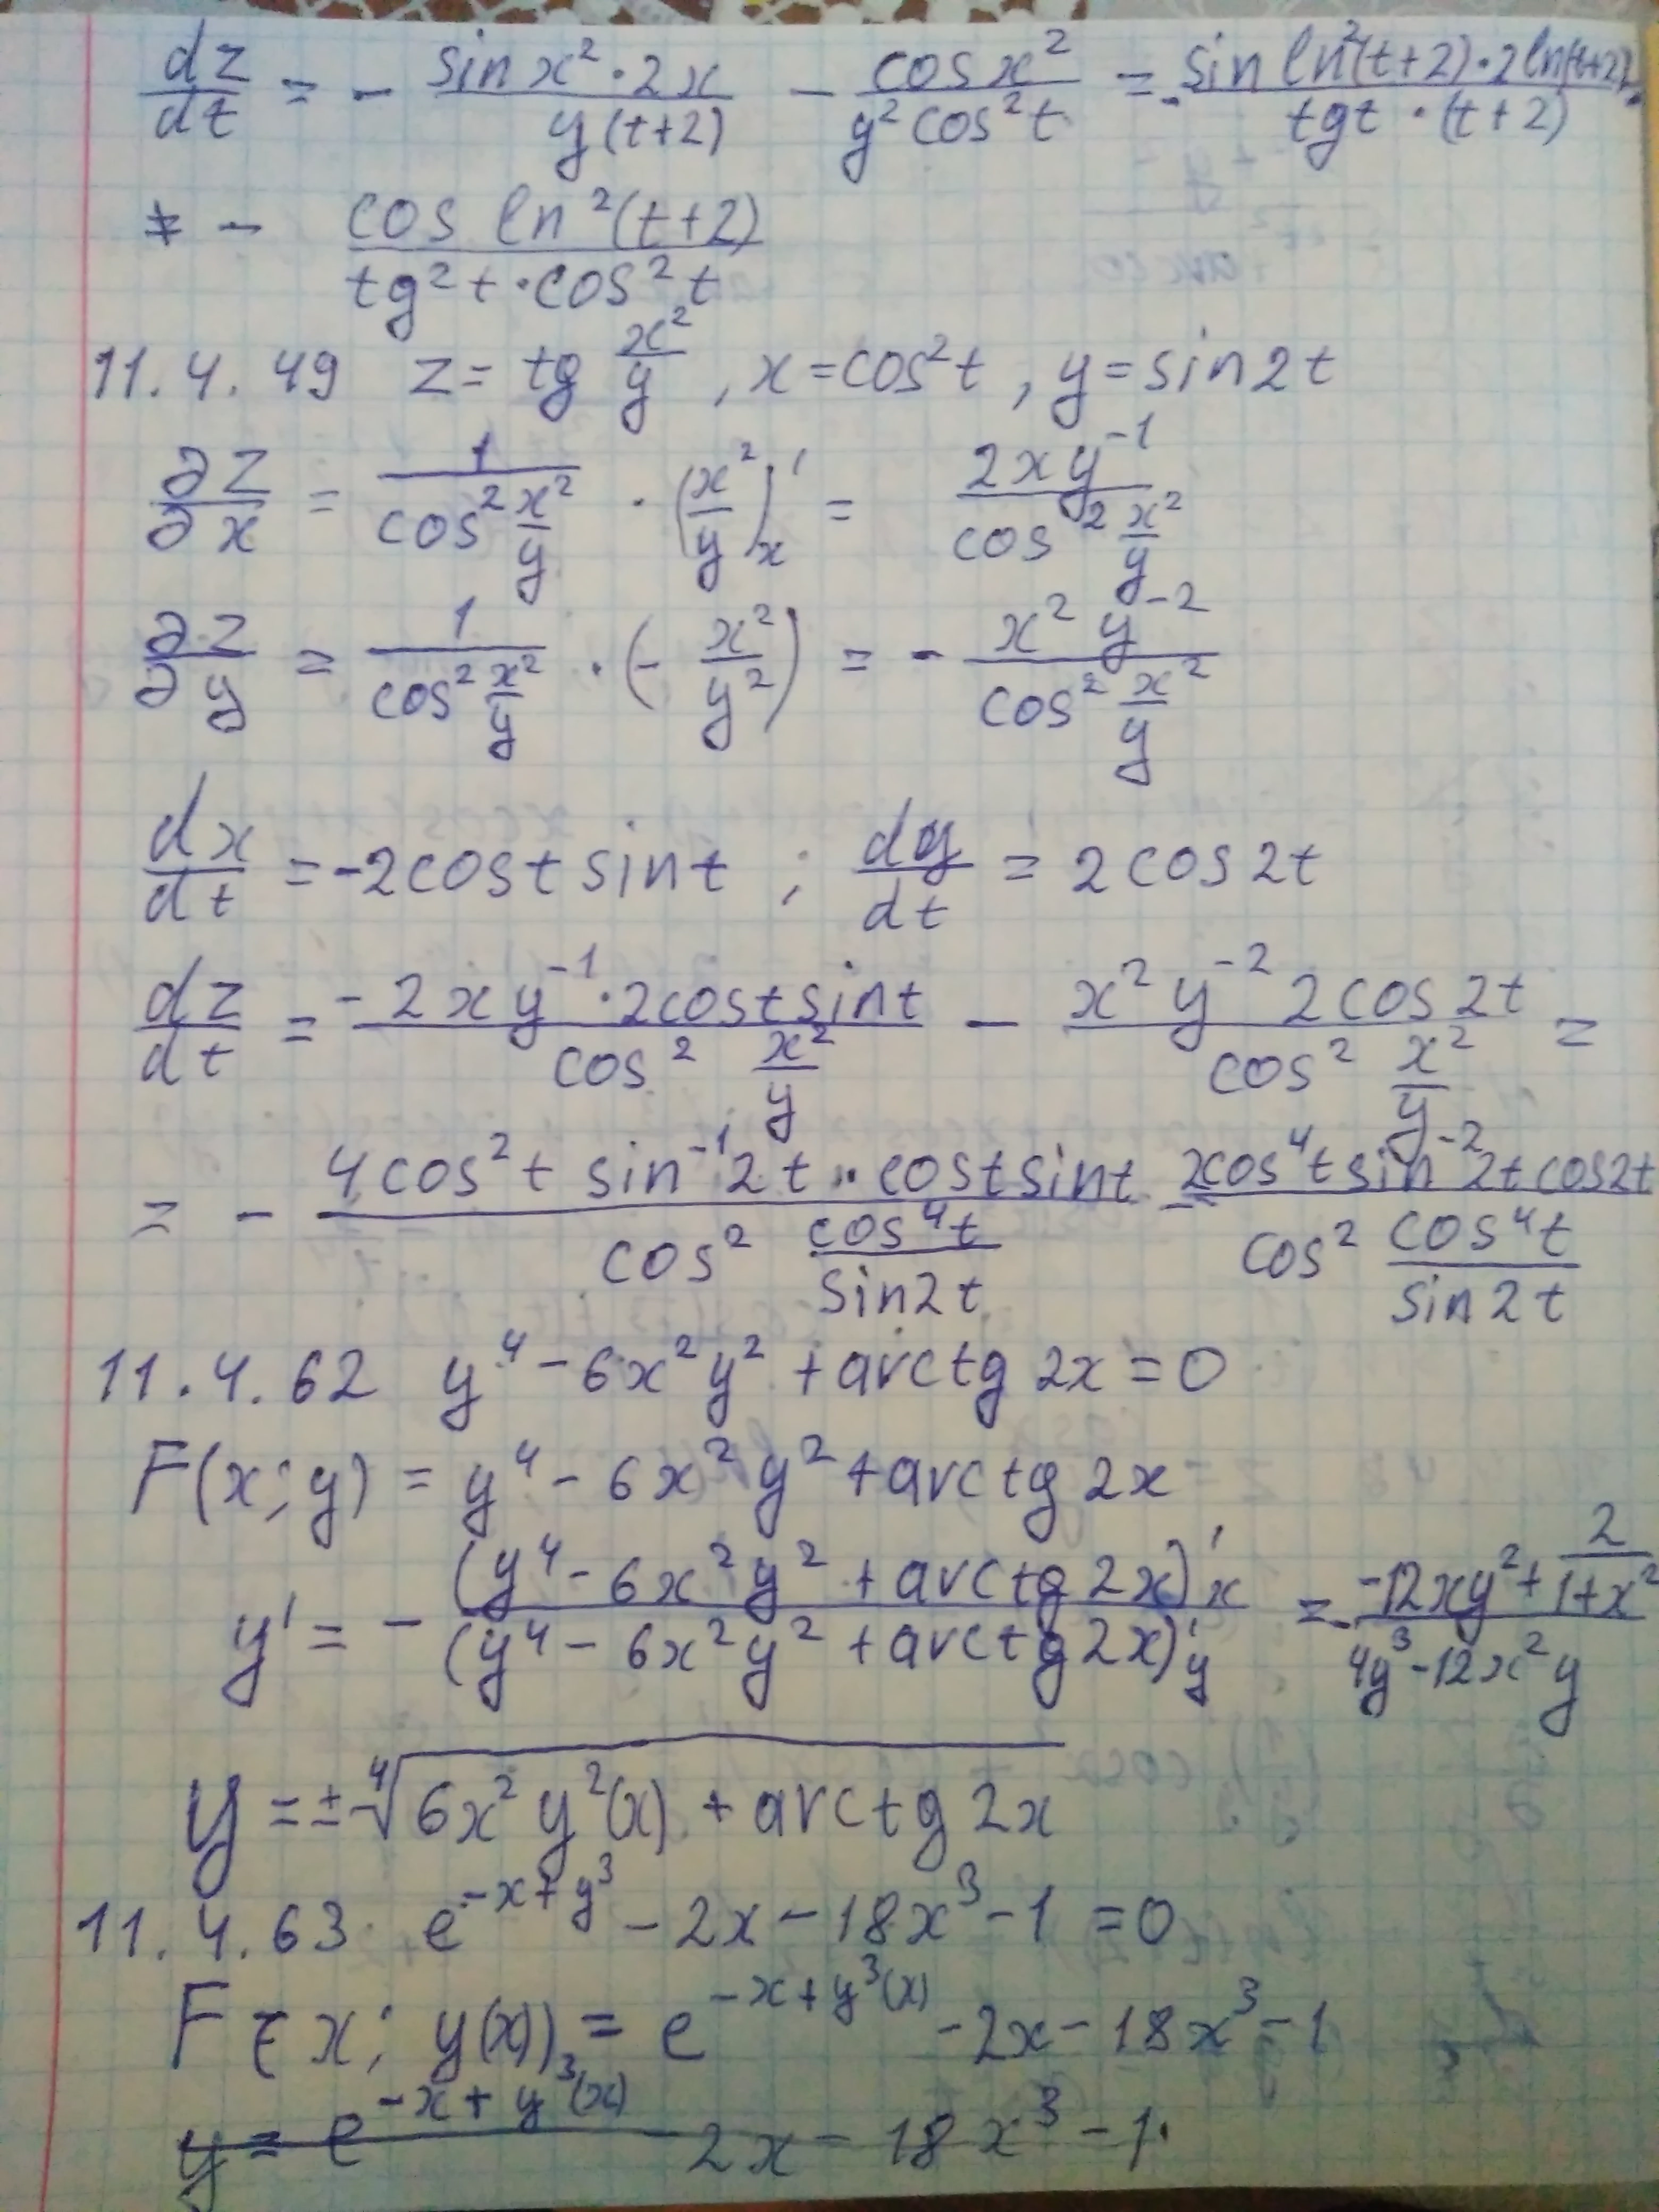 dz/dt = - (sin x² · 2x)/(y(t+2)) - (cos x²)/(y² cos² t) = - (sin ln²(t+2) · 2 ln(t+2))/(tg t · (t+2)) -
- (cos ln²(t+2))/(tg² t · cos² t)
11.4.49 z = tg x²/y, x = cos² t, y = sin 2t
∂z/∂x = 1/(cos² x²/y) · (x²/y)'ₓ = (2xy⁻¹)/(cos² x²/y)
∂z/∂y = 1/(cos² x²/y) · (- x²/y²) = - (x² y⁻²)/(cos² x²/y)
dx/dt = -2 cos t sin t ; dy/dt = 2 cos 2t
dz/dt = (-2xy⁻¹ · 2 cos t sin t)/(cos² x²/y) - (x² y⁻² 2 cos 2t)/(cos² x²/y) =
= - (4 cos² t sin⁻¹ 2t · cos t sin t)/(cos² (cos⁴ t/sin 2t)) - (2 cos⁴ t sin⁻² 2t cos 2t)/(cos² (cos⁴ t/sin 2t))
11.4.62 y⁴ - 6x²y² + arctg 2x = 0
F(x; y) = y⁴ - 6x² y² + arctg 2x
y' = - ((y⁴ - 6x² y² + arctg 2x)'x)/((y⁴ - 6x² y² + arctg 2x)'y) = - (-12xy² + 2/(1+x²))/(4y³ - 12x² y)
y = ± ⁴√(6x² y²(x) + arctg 2x)
11.4.63 e^(-x+y³) - 2x - 18x³ - 1 = 0
F(x; y(x)) = e^(-x+y³(x)) - 2x - 18x³ - 1
y = e^(-x+y³(x)) - 2x - 18x³ - 1.